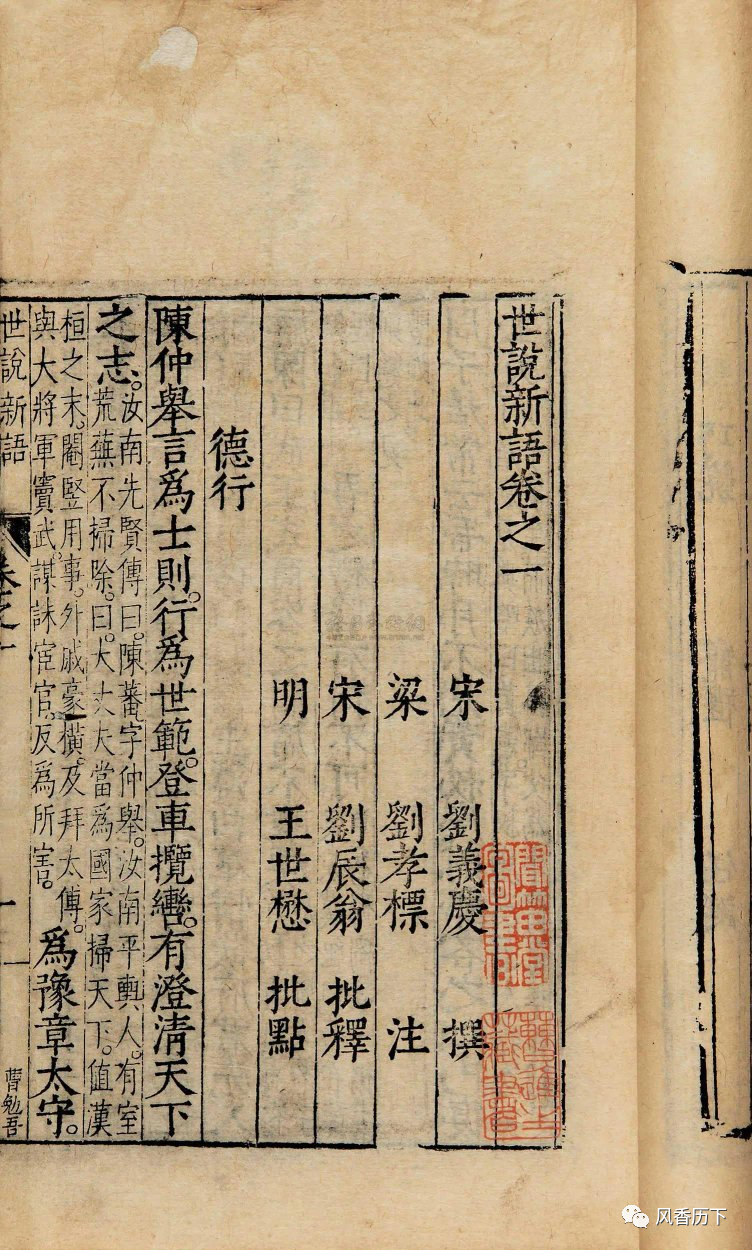 世說新語卷之一
宋 劉義慶 撰
梁 劉孝標 注
宋 劉辰翁 批釋
明 王世懋 批點
德行
陳仲舉言爲士則。行爲世範。登車攬轡。有澄清天下
之志。汝南先賢傳曰。陳蕃字仲舉。汝南平輿人。有室
荒蕪不掃除。曰。大丈夫當爲國家掃天下。值漢
桓之末。閹豎用事。外戚豪橫。及拜太傅。
與大將軍竇武。謀誅宦官。反爲所害。爲豫章太守。
世說新語 卷之一 一
曹勉吾
风香历下